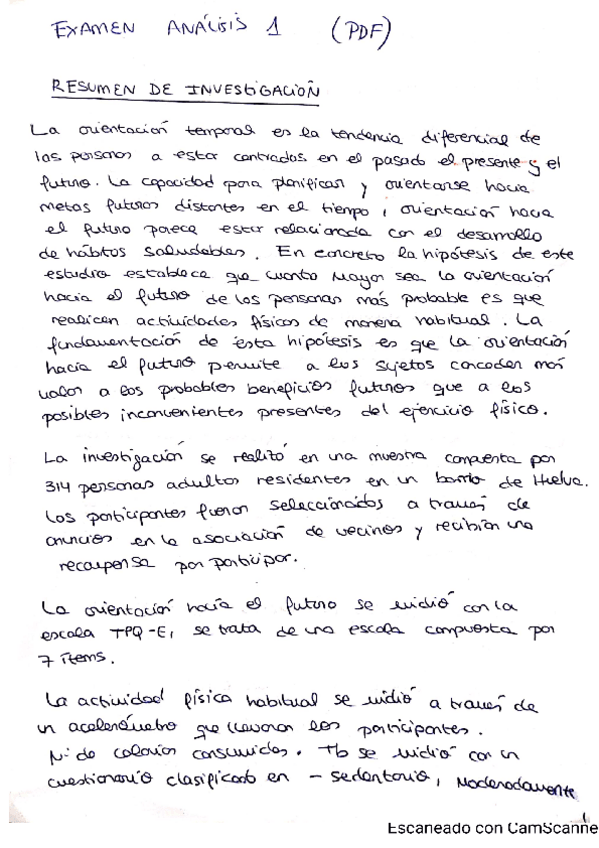 EXAMEN ANÁLISIS 1 (PDF)
RESUMEN DE INVESTIGACIÓN
La orientación temporal es la tendencia diferencial de
las personas a estar centradas en el pasado el presente y el
futuro. La capacidad para planificar y orientarse hacia
metas futuras distantes en el tiempo, orientación hacia
el futuro parece estar relacionada con el desarrollo
de hábitos saludables. En concreto la hipótesis de este
estudio establece que cuanto mayor sea la orientación
hacia el futuro de las personas más probable es que
realicen actividades físicas de manera habitual. La
fundamentación de esta hipótesis es que la orientación
hacia el futuro permite a los sujetos conceder más
valor a los probables beneficios futuros que a los
posibles inconvenientes presentes del ejercicio físico.
La investigación se realizó en una muestra compuesta por
314 personas adultas residentes en un barrio de Huelva.
Los participantes fueron seleccionados a través de
anuncios en la asociación de vecinos y recibían una
recompensa por participar.
La orientación hacia el futuro se midió con la
escala TPQ-E, se trata de una escala compuesta por
7 ítems.
La actividad física habitual se midió a través de
un acelerómetro que llevaron los participantes.
Nº de calorías consumidas. Tb se midió con un
cuestionario clasificado en - sedentario, Moderadamente
1
Escaneado con CamScanne